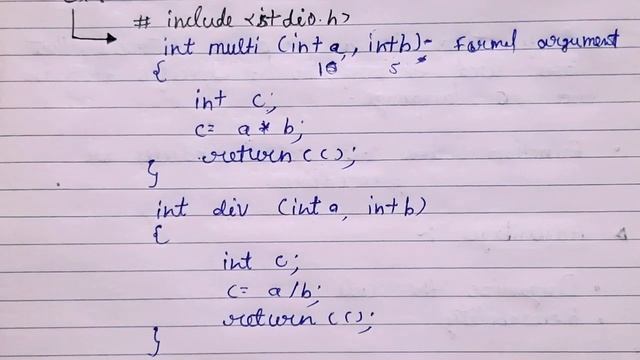 # include <stdio.h>
int multi (int a, int b) - Formel argument
10 5
{
int c;
c= a * b;
return (c);
}
int div (int a, int b)
{
int c;
c= a/b;
return (c);
}